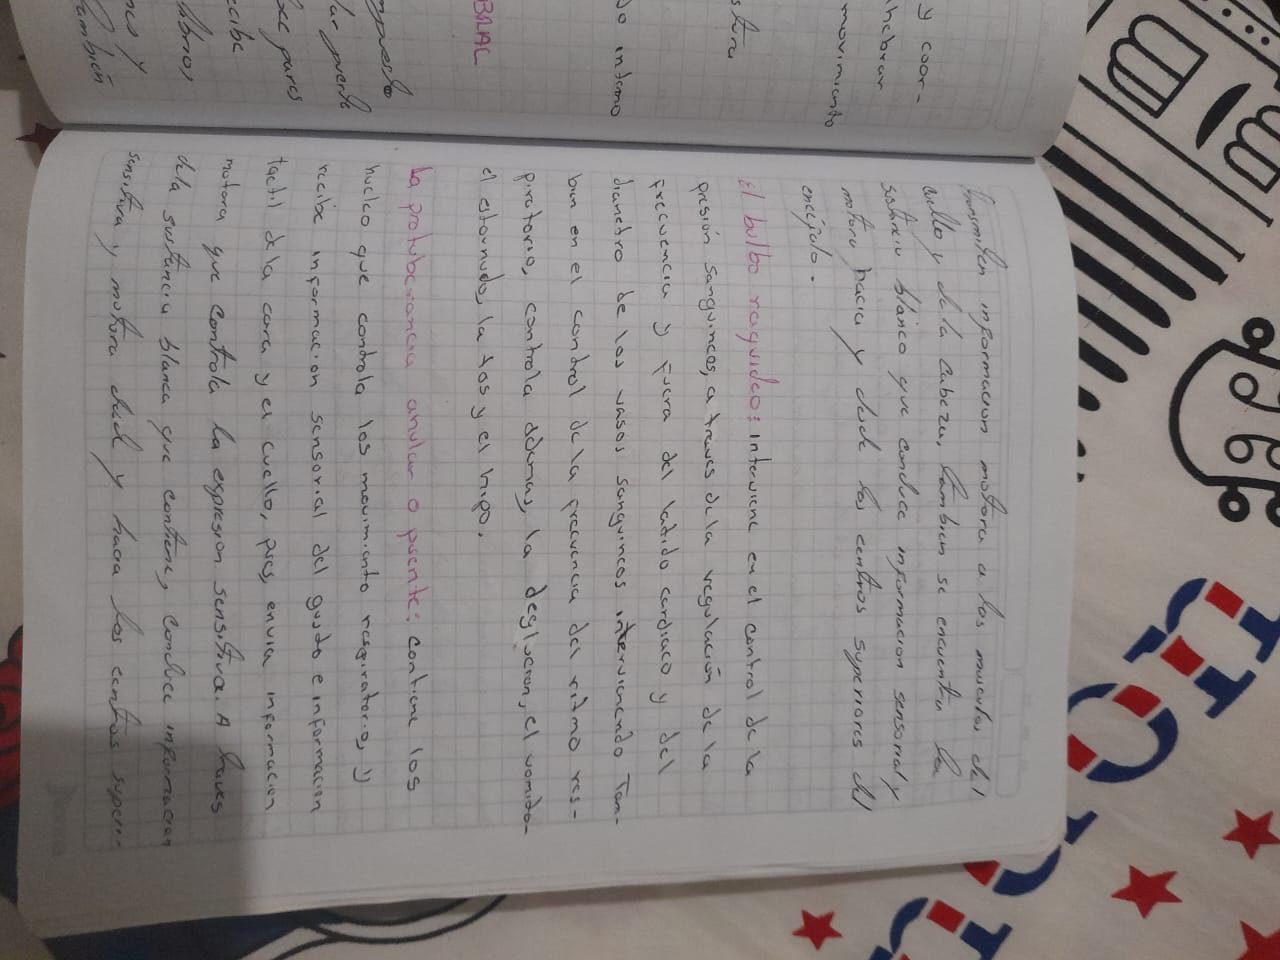 y coor-
hebrar
movimiento
do interno
BRAL
puente
pares
recibe
y
también
transmiten informacion motora a los musculos del
cuello y de la cabeza, tambien se encuentra la
sustancia blanca que conduce informacion sensorial y
motora hacia y desde los centros superiores del
encéfalo.
El bulbo raquideo: interviene en el control de la
presión sanguinea, a traves de la regulación de la
frecuencia y fuerza del latido cardiaco y del
diametro de los vasos sanguineos interviniendo Tam-
bien en el control de la frecuencia del ritmo res-
piratorio, controla ademas, la deglucion, el vomito-
el estornudo, la tos y el hipo.
La protuberancia anular o puente: contiene los
nucleo que controla los movimiento respiratorio, y
recibe informacion sensorial del gusto e informacion
tactil de la cara y el cuello, pues, envia informacion
motora que controla la expresion sensitiva. A traves
de la sustancia blanca que contiene, conduce informacion
sensitiva y motora desde y hacia los centros superi-